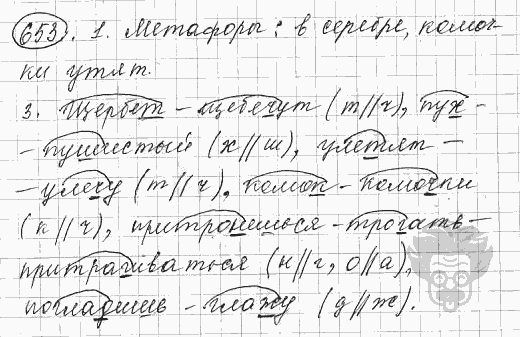 653. 1. Метафоры: в серебре, комоч-
ки утят.
3. Щебет - щебечут (т//ч), пух -
- пушистый (х//ш), улетят -
- улечу (т//ч), комок - комочки
(к//ч), притронешься - трогать -
притрагиваться (н//г, о//а),
погладишь - глажу (д//ж).